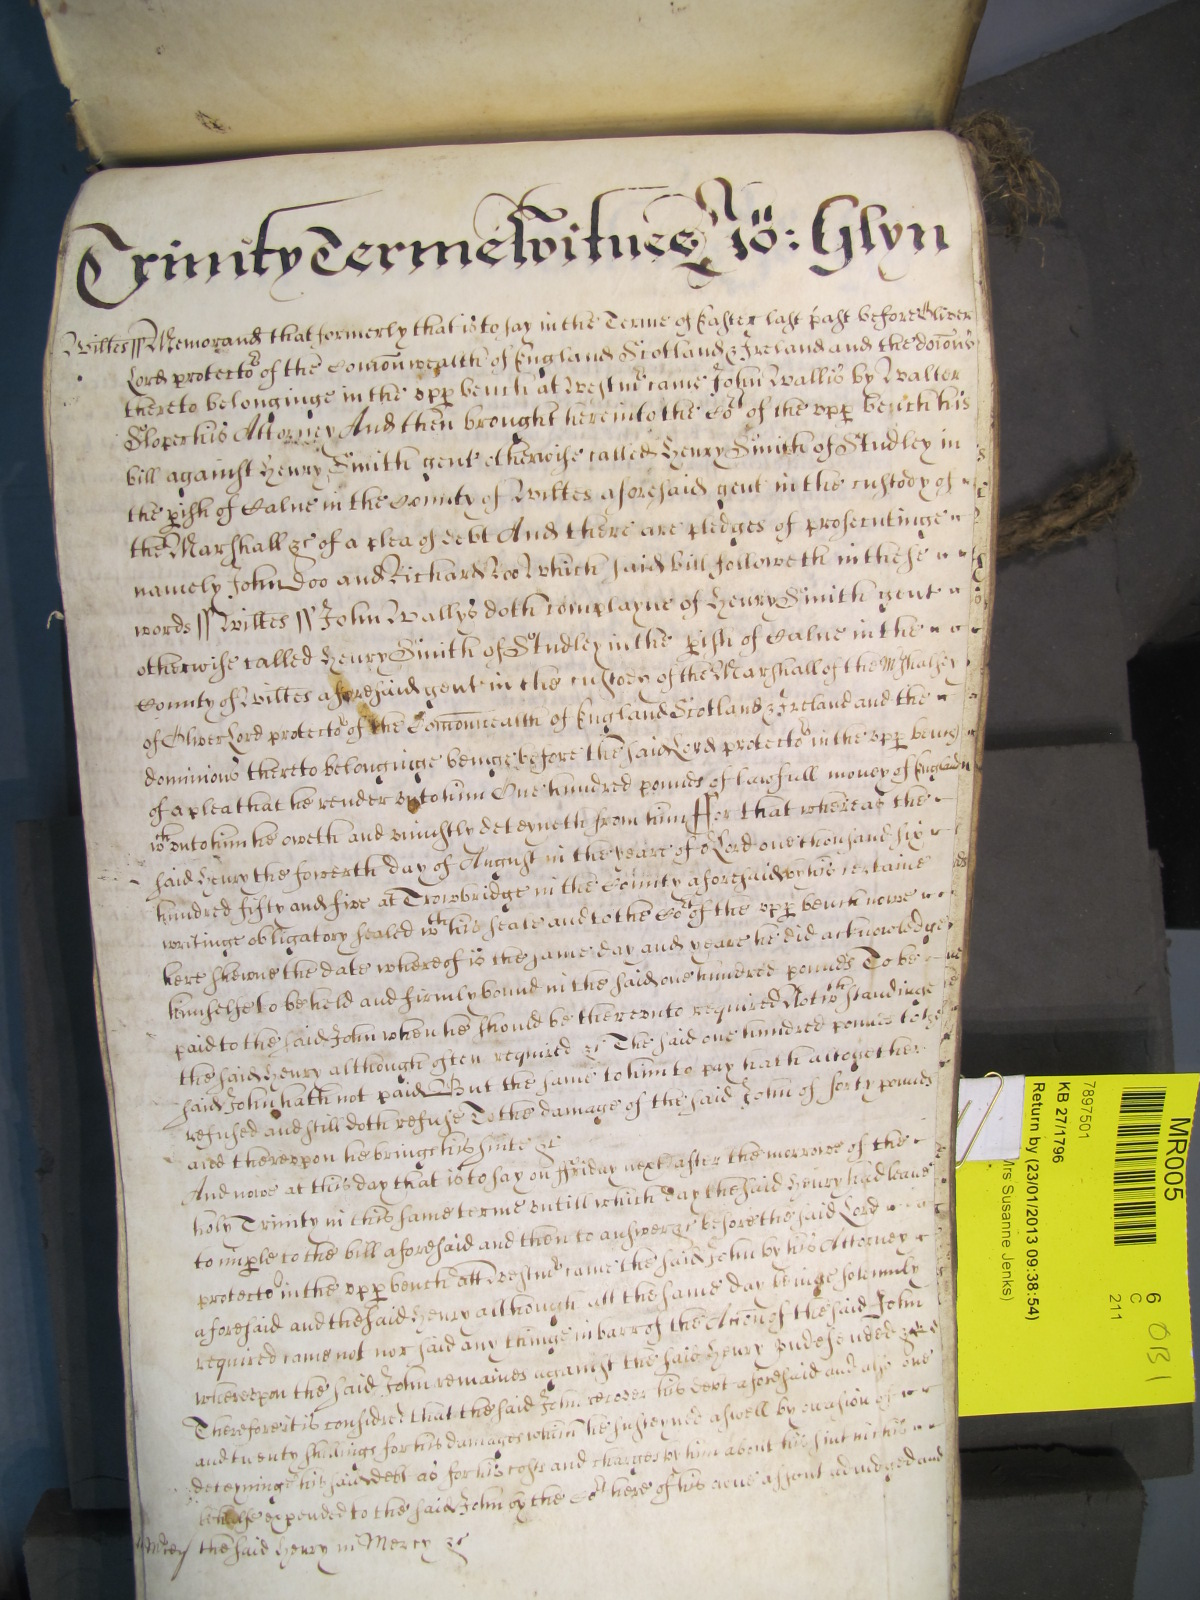 Trinity Terme Witnes Jo: Glyn
Wiltes ss Memorand that formerly that is to say in the Terme of Easter last past before Oliver
Lord protector of the Comonwealth of England Scotland & Ireland and the domons
thereto belonginge in the vpp bench at Westmr came John Wallis by Walter
Sloper his Attorney And then brought here into the Cot of the vpp bench his
bill against Henry Smith gent otherwise called Henry Smith of Studley in
the pish of Calne in the County of Wiltes aforesaid gent in the custody of
the Marshall &c of a plea of debt And there are pledges of prosecutinge
namely John Doo and Richard Roo Which said bill followeth in these
words ss Wiltes ss John Wallys doth complayne of Henry Smith gent
otherwise called Henry Smith of Studley in the pish of Calne in the
County of Wiltes aforesaid gent in the custody of the Marshall of the Mshalsey
of Oliver Lord protector of the Comonwealth of England Scotland & Ireland and the
dominions thereto belonginge beinge before the said Lord protector in the vpp bench
of a plea that he render vnto him One hundred pounds of lawfull money of England
wch vnto him he oweth and vniustly deteyneth from him For that whereas the
said Henry the fowerth day of August in the yeare of or Lord one thousand six
hundred fifty and five at Trowbridge in the County aforesaid by his certaine
writinge obligatory sealed wth his seale and to the Cot of the vpp bench nowe
here shewne the date whereof is the same day and yeare he did acknowledge
himselfe to be held and firmly bound in the said one hundred pounds To be
paid to the said John when he should be therevnto required Notwthstandinge
the said Henry although often required &c The said one hundred pounds to the
said John hath not paid But the same to him to pay hath altogether
refused and still doth refuse To the damage of the said John of forty pounds
and therevpon he brings his suite &c
And nowe at this day that is to say on Friday next after the morrowe of the
holy Trinity in this same terme vntill which day the said Henry had leave
to imple to the bill aforesaid and then to answer &c before the said Lord
protector in the vpp bench att Westmr came the said John by his Attorney
aforesaid and the said Henry although att the same day beinge solemnly
required came not nor said any thinge in barr of the Accon of the said John
wherevpon the said John remaines against the said Henry vndefended &c
Therefore it is considred that the said John recover his debt aforesaid and also one
and twenty shillings for his damages which he susteyned aswell by occasion of
deteyninge his said debt as for his costs and charges by him about his suit in this
behalfe expended to the said John by the Cot here of his owne assent adiudged and
Mercy the said Henry in Mercy &c
MR005
6
C
211
OB 1
7897501
KB 27/1796
Return by (23/01/2013 09:38:54)
Mrs Susanne Jenks)